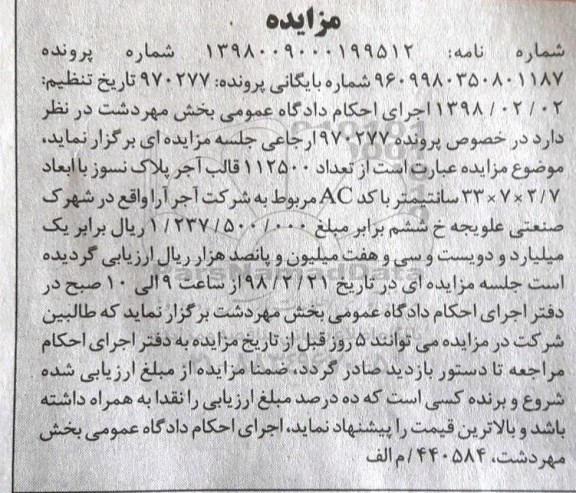 مزایده
شماره نامه: ۱۳۹۸۰۰۹۰۰۰۱۹۹۵۱۲ شماره پرونده
۹۶۰۹۹۸۰۳۵۰۸۰۱۱۸۷ شماره بایگانی پرونده: ۹۷۰۲۷۷ تاریخ تنظیم:
۱۳۹۸/۰۲/۰۲ اجرای احکام دادگاه عمومی بخش مهردشت در نظر
دارد در خصوص پرونده ۹۷۰۲۷۷ ارجاعی جلسه مزایده ای برگزار نماید،
موضوع مزایده عبارت است از تعداد ۱۱۲۵۰۰ قالب آجر پلاک نسوز با ابعاد
۲/۷×۷×۳۳ سانتیمتر با کد AC مربوط به شرکت آجر آرا واقع در شهرک
صنعتی علویجه خ ششم برابر مبلغ ۱/۲۳۷/۵۰۰/۰۰۰ ریال برابر یک
میلیارد و دویست و سی و هفت میلیون و پانصد هزار ریال ارزیابی گردیده
است جلسه مزایده ای در تاریخ ۹۸/۲/۲۱ از ساعت ۹ الی ۱۰ صبح در
دفتر اجرای احکام دادگاه عمومی بخش مهردشت برگزار نماید که طالبین
شرکت در مزایده می توانند ۵ روز قبل از تاریخ مزایده به دفتر اجرای احکام
مراجعه تا دستور بازدید صادر گردد، ضمنا مزایده از مبلغ ارزیابی شده
شروع و برنده کسی است که ده درصد مبلغ ارزیابی را نقدا به همراه داشته
باشد و بالاترین قیمت را پیشنهاد نماید، اجرای احکام دادگاه عمومی بخش
مهردشت، ۴۴۰۵۸۴/م الف
ParsNamadData